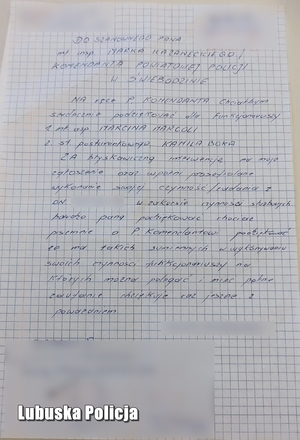 DO SZANOWNEGO PANA
mł. insp. MARKA KAZANECKIEGO /
KOMENDANTA POWIATOWEJ POLICJI
W ŚWIEBODZINIE
NA ręce P. KOMENDANTA Chciałbym
serdecznie podziękować dla Funkcjonariuszy
1. mł. asp. MARCINA
2. st. posterunkowego KAMILA BOKA
ZA błyskawiczną interwencję na moje
zgłoszenie oraz w pełni profesjonalne
wykonanie swojej czynności/zadania z
DN. w zakresie czynności służbowych
bardzo panu podziękować chociaż
pisemnie a P. Komendantowi
że ma takich sumiennych w wykonywaniu
swoich czynności funkcjonariuszy na
których można polegać i mieć pełne
zaufanie dziękuje raz jeszcze z
poważaniem
Lubuska Policja